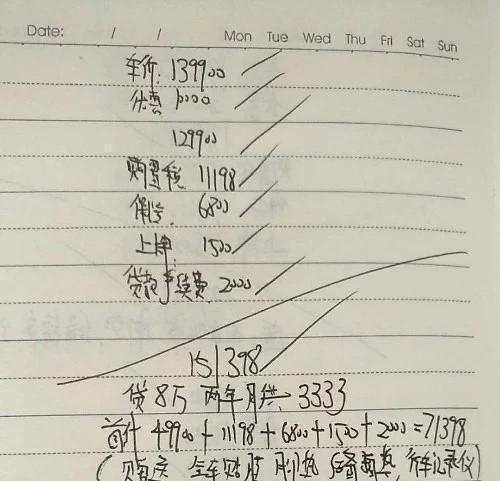 Date: / / Mon Tue Wed Thu Fri Sat Sun
车价: 139900
优惠 10000
129900
购置税 11198
保险 6800
上牌 1500
贷款手续费 2000
151398
贷8万 两年月供 3333
首付 49900+11198+6800+1500+2000=71398
全车贴膜 脚垫 后备箱垫, 行车记录仪)